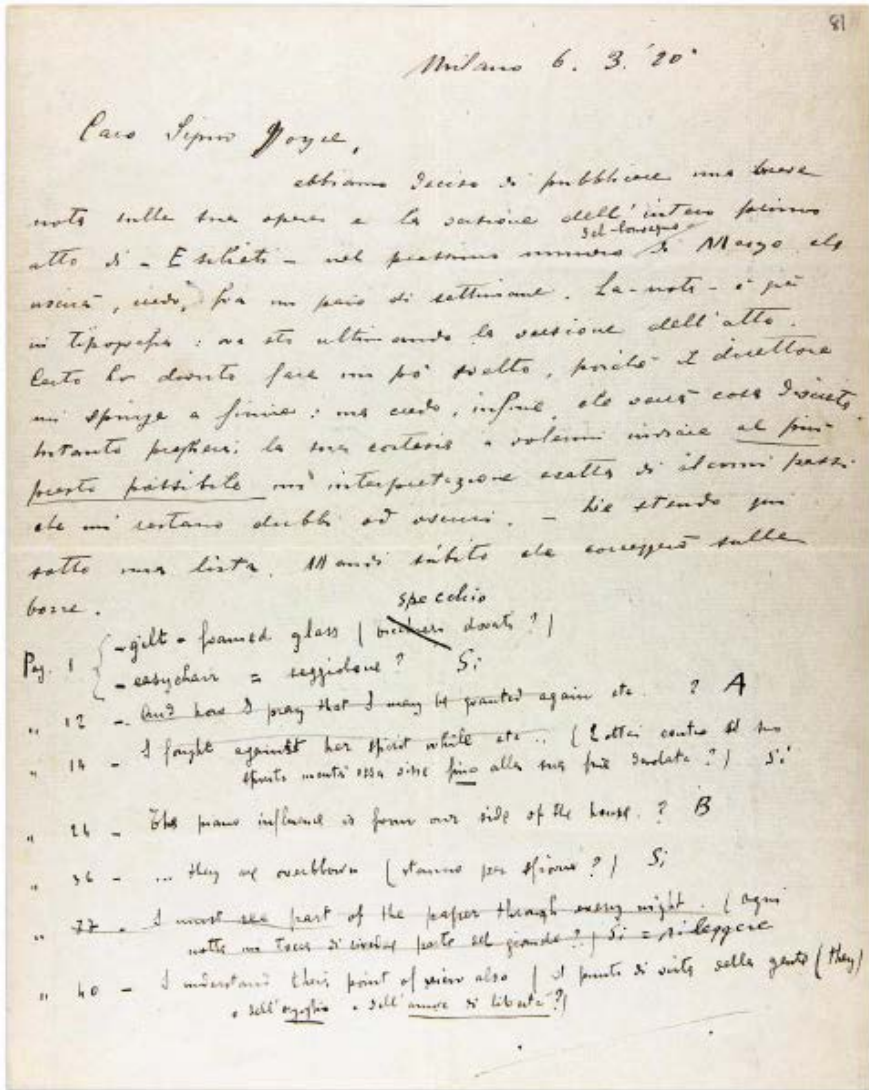 81
Milano 6. 3. '20
Caro Signor Joyce,
abbiamo deciso di pubblicare una breve
nota sulla sua opera e la versione dell'intero primo
atto di - Esiliati - nel prossimo numero di Marzo che
del Convegno
uscirà, credo, fra un paio di settimane. La-nota-è già
in tipografia: ora sto ultimando la versione dell'atto.
Certo ho dovuto fare un pò svelto, poichè il direttore
mi spinge a finire: ma credo, infine, che verrà cosa discreta.
Intanto pregherei la sua cortesia a volermi inviare al più
presto possibile un'interpretazione esatta di alcuni passi
che mi restano dubbi od oscuri. - Le stendo qui
sotto una lista. Mandi sùbito che correggerò sulle
bozze.
specchio
Pag. 1 - gilt-framed glass (bicchieri dorati?)
- easychair = seggiolone? Si
" 12 - And how I pray that I may be granted again etc. ? A
" 14 - I fought against her spirit while etc.. (Lottai contro il suo
spirito mentr'essa visse fino alla sua fine desolata?) Si
" 26 - The piano influence is from our side of the house. ? B
" 36 - ... they are overblown (stanno per sfiorire?) Si
" 37 - I must see part of the paper through every night. (Ogni
notte mi tocca di rivedere parte del giornale?) Si = rileggere
" 40 - I understand their point of view also (il punto di vista della gente (they)
o dell'orgoglio e dell'amore di libertà?)